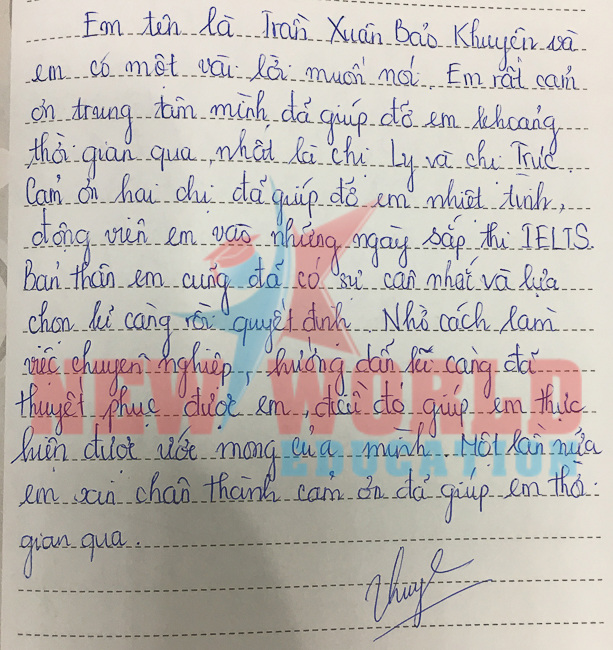 Em tên là Trần Xuân Bảo Khuyên và
em có một vài lời muốn nói. Em rất cảm
ơn trung tâm mình đã giúp đỡ em khoảng
thời gian qua, nhất là chị Ly và chị Trúc.
Cảm ơn hai chị đã giúp đỡ em nhiệt tình,
động viên em vào những ngày sắp thi IELTS.
Bản thân em cũng đã có sự cân nhắt và lựa
chọn kĩ càng rồi quyết định. Nhờ cách làm
việc chuyên nghiệp, hướng dẫn kĩ càng đã
thuyết phục được em, điều đó giúp em thực
hiện được ước mong của mình. Một lần nữa
em xin chân thành cảm ơn đã giúp em thời
gian qua.
NEW WORLD
EDUCATION